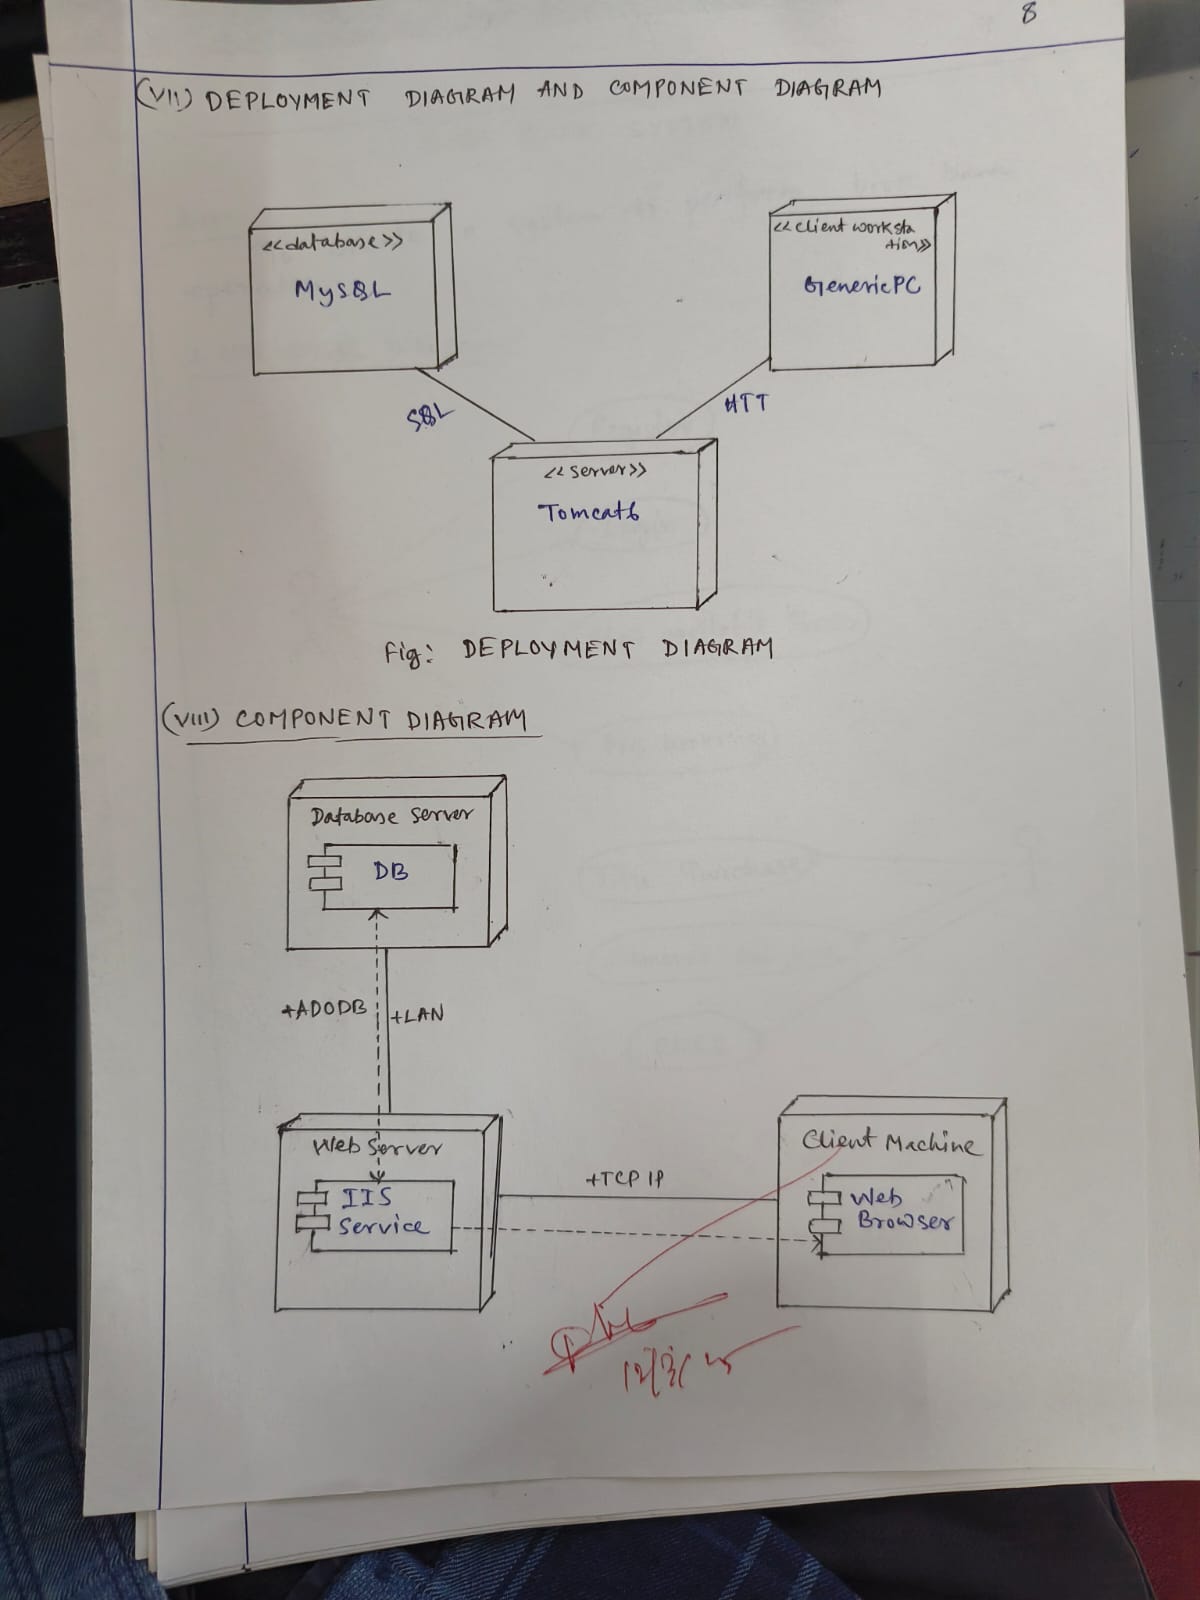 8
(VII) DEPLOYMENT DIAGRAM AND COMPONENT DIAGRAM
<<database>>
MySQL
<<client worksta
tion>>
GenericPC
SQL
HTT
<<server>>
Tomcat6
Fig: DEPLOYMENT DIAGRAM
(VIII) COMPONENT DIAGRAM
Database Server
DB
+ADODB
+LAN
Web Server
IIS
Service
+TCP IP
Client Machine
Web
Browser